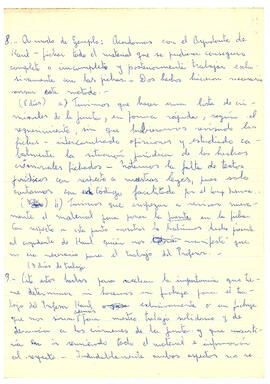 8.- A modo de Ejemplo: Acordamos con el Ayudante de
Kaul - fichar todo el material que se pudiera conseguir
completo o incompleto y posteriormente trabajar exclu-
sivamente con las fichas. - Dos hechos hicieron necesario
usar este metodo.-
a) Tuvimos que hacer una lista de cri-
minales de la Junta, en forma rapida, según el
requerimiento, sin que hubieramos revisado las
fichas - intercambiado opiniones y estudiado ca-
balmente la situación juridica de los hechos
criminales fichados - notamos la falta de textos
juridicos con respecto a nuestras leyes, pues solo
contamos con codigo facilitado por el
b) Tuvimos que empezar a revisar nueva-
mente el material para poner la fuente en la ficha
con respecto a este punto nosotros lo habiamos hecho presente
al ayudante de Kaul quien nos manifestó que
no era necesario para el trabajo del Profesor.
13 dias de trabajo
9.- Cite estos hechos para evaluar la importancia que tie-
ne determinar si hacemos un trabajo para el tra-
bajo del Profesor Kaul exclusivamente o un trabajo
que nos sirva para nuestro trabajo solidario y de
denuncia a los crimenes de la Junta y que consisti-
ria en ir reuniendo todo el material e información
al respecto. - Indudablemente ambos aspectos no se